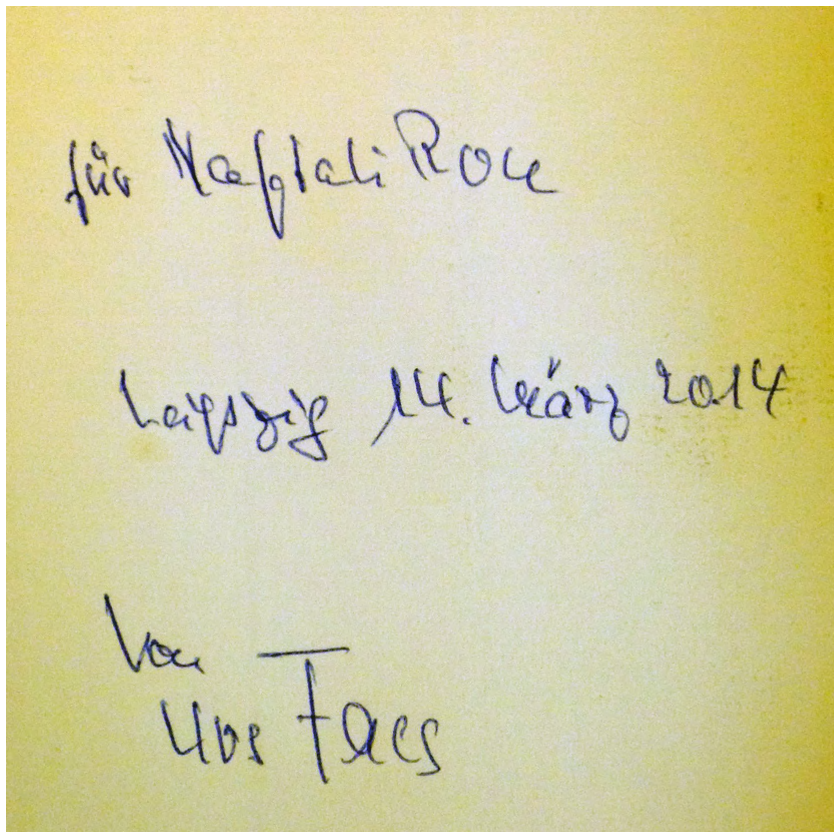 für Naftali Ron
Leipzig 14. März 2014
Von
Urs Faes